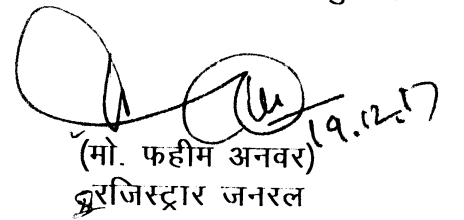 19.12.17
(मो. फहीम अनवर)
रजिस्ट्रार जनरल